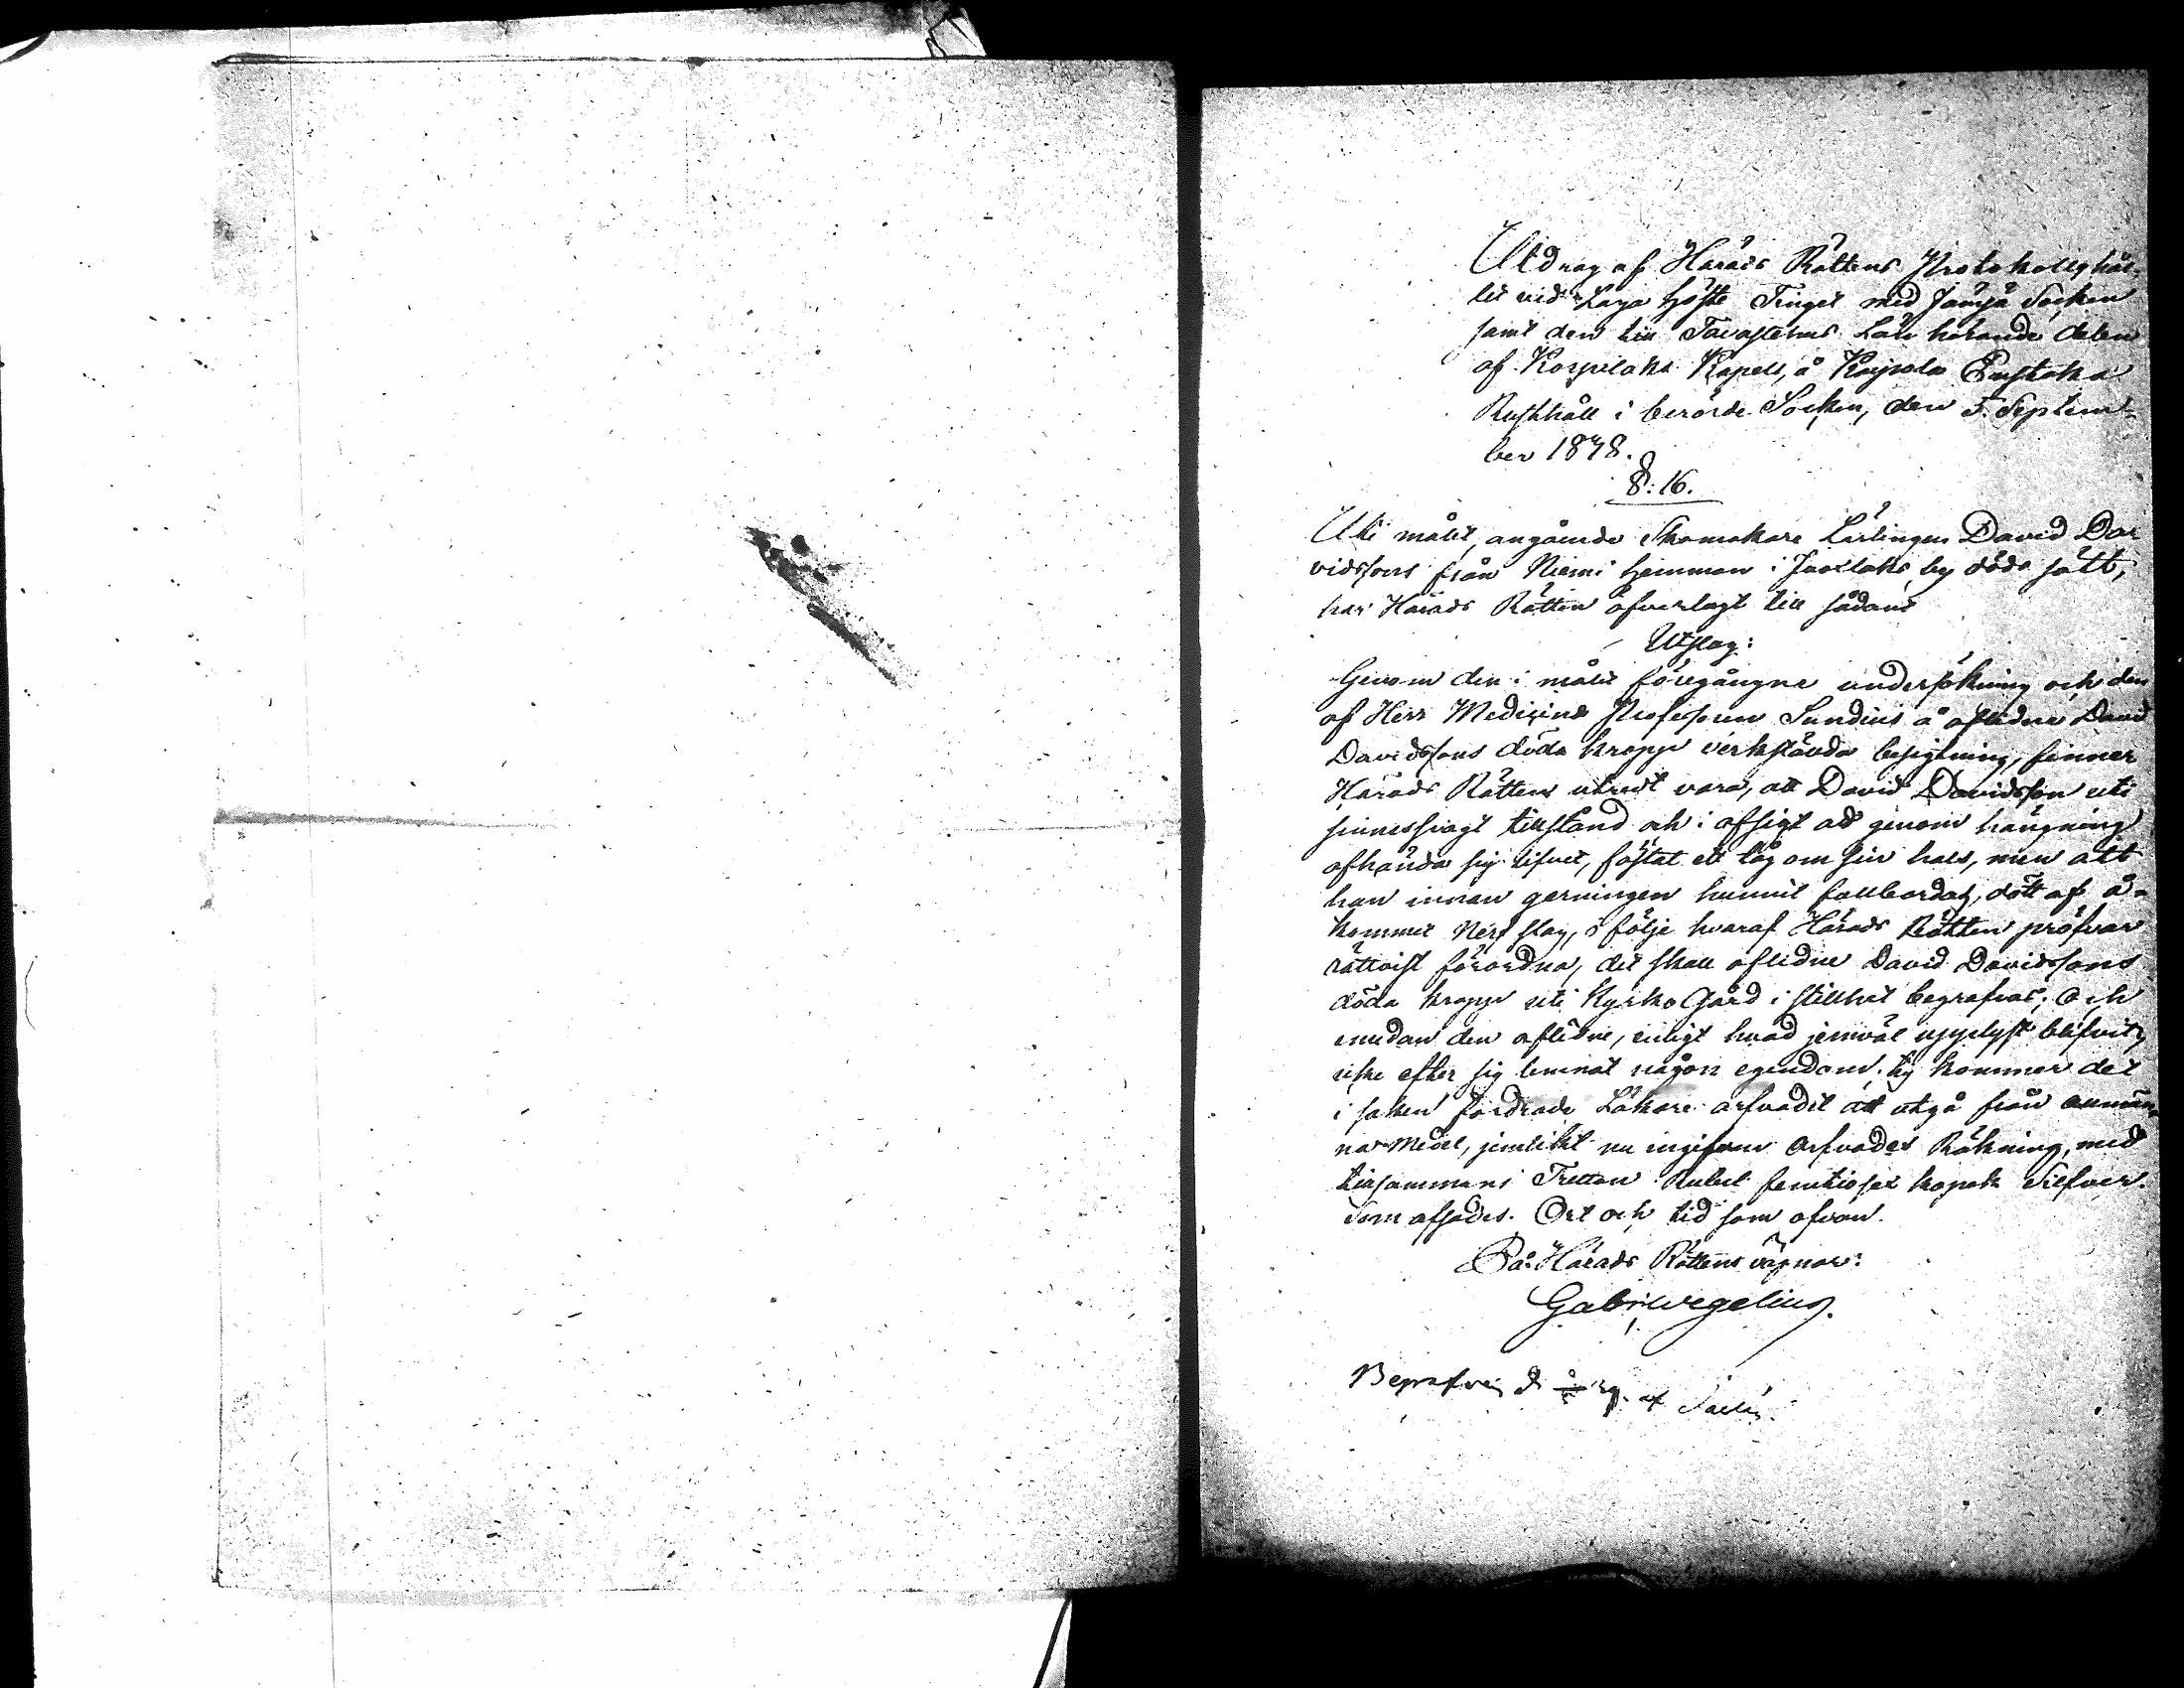 Utdrag af Härads Rättens Protokoll, hål-
let vid Laga Höste Tinget med Jämsä Socken
samt den till Tavastehus Län hörande delen
af Korpilaks Kapell, å Kaipola
Rusthåll i berörde Socken, den 5. Septem-
ber 1848.
§: 16.
Uti målet, angående Skomakare Lärlingen David Da-
vidssons från Niemi hemman i by döda sätt,
har Härads Rätten öfverlagt till sådant
Utslag:
Genom den i målet föregångna undersökning och den
af Herr Medicine Professoren Sundius å aflidne David
Davidssons döda kropp verkstälda besigtning, finner
Härads Rätten utredt vara, att David Davidsson uti
sinnessvagt tillstånd och i afsigt att genom hängning
afhända sig lifvet, fästat ett tåg om sin hals, men att
han innan gerningen hunnit fullbordas, dött af å-
kommet Nerf slag, i följe hvaraf Härads Rätten pröfvar
rättvist förordna, det skall aflidne David Davidssons
döda kropp uti Kyrko Gård i stillhet begrafvas; Och
emedan den aflidne, enligt hvad jemväl upplyst blifvit,
icke efter sig lemnat någon egendom; ty kommer det
i saken fordrade Läkare arfvodet att utgå från allmän-
na medel, jemlikt nu ingifven Arfvodes Räkning, med
tillsammans Tretton Rubel femtiosex kopek Silfver.
Som afsades. Ort och tid som ofvan.
På Härads Rättens vägnar:
Gab. Wegelius.
Begrafven d af